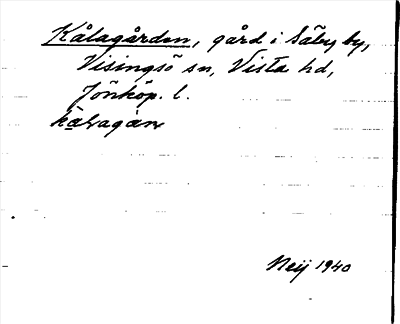 Kålagården, gård i Säby by,
Visingsö sn, Vista hd,
Jönköp. l.
Neij 1940